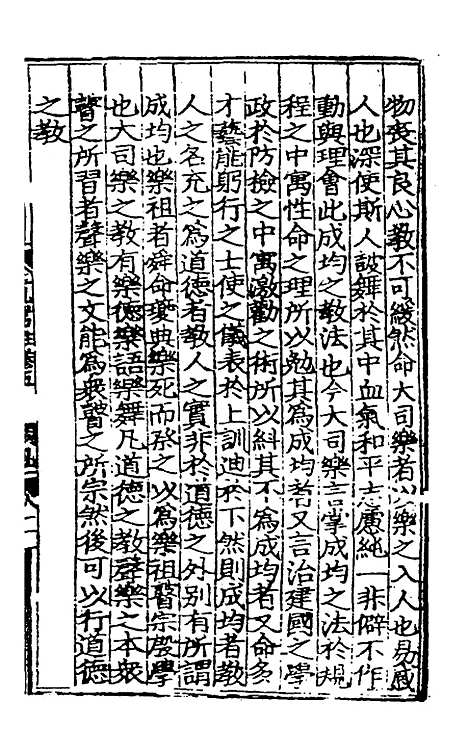 物喪其良心教不可緩然命大司樂者以樂之入人也易感
人也深使斯人鼓舞於其中血氣和平志慮純一非僻不作
動與理會此成均之教法也今大司樂言掌成均之法於規
程之中寓性命之理所以勉其為成均者又言治建國之學
政於防檢之中寓激勸之術所以糾其不為成均者又命多
才藝能躬行之士使之儀表於上訓迪於下然則成均者教
人之名充之為道德者教人之實非於道德之外別有所謂
成均也樂祖者舜命夔典樂死而祭之以為樂祖瞽宗殷學
也大司樂之教有樂德樂語樂舞凡道德之教聲樂之本衆
瞽之所習者聲樂之文能為衆瞽之所宗然後可以行道德
之教